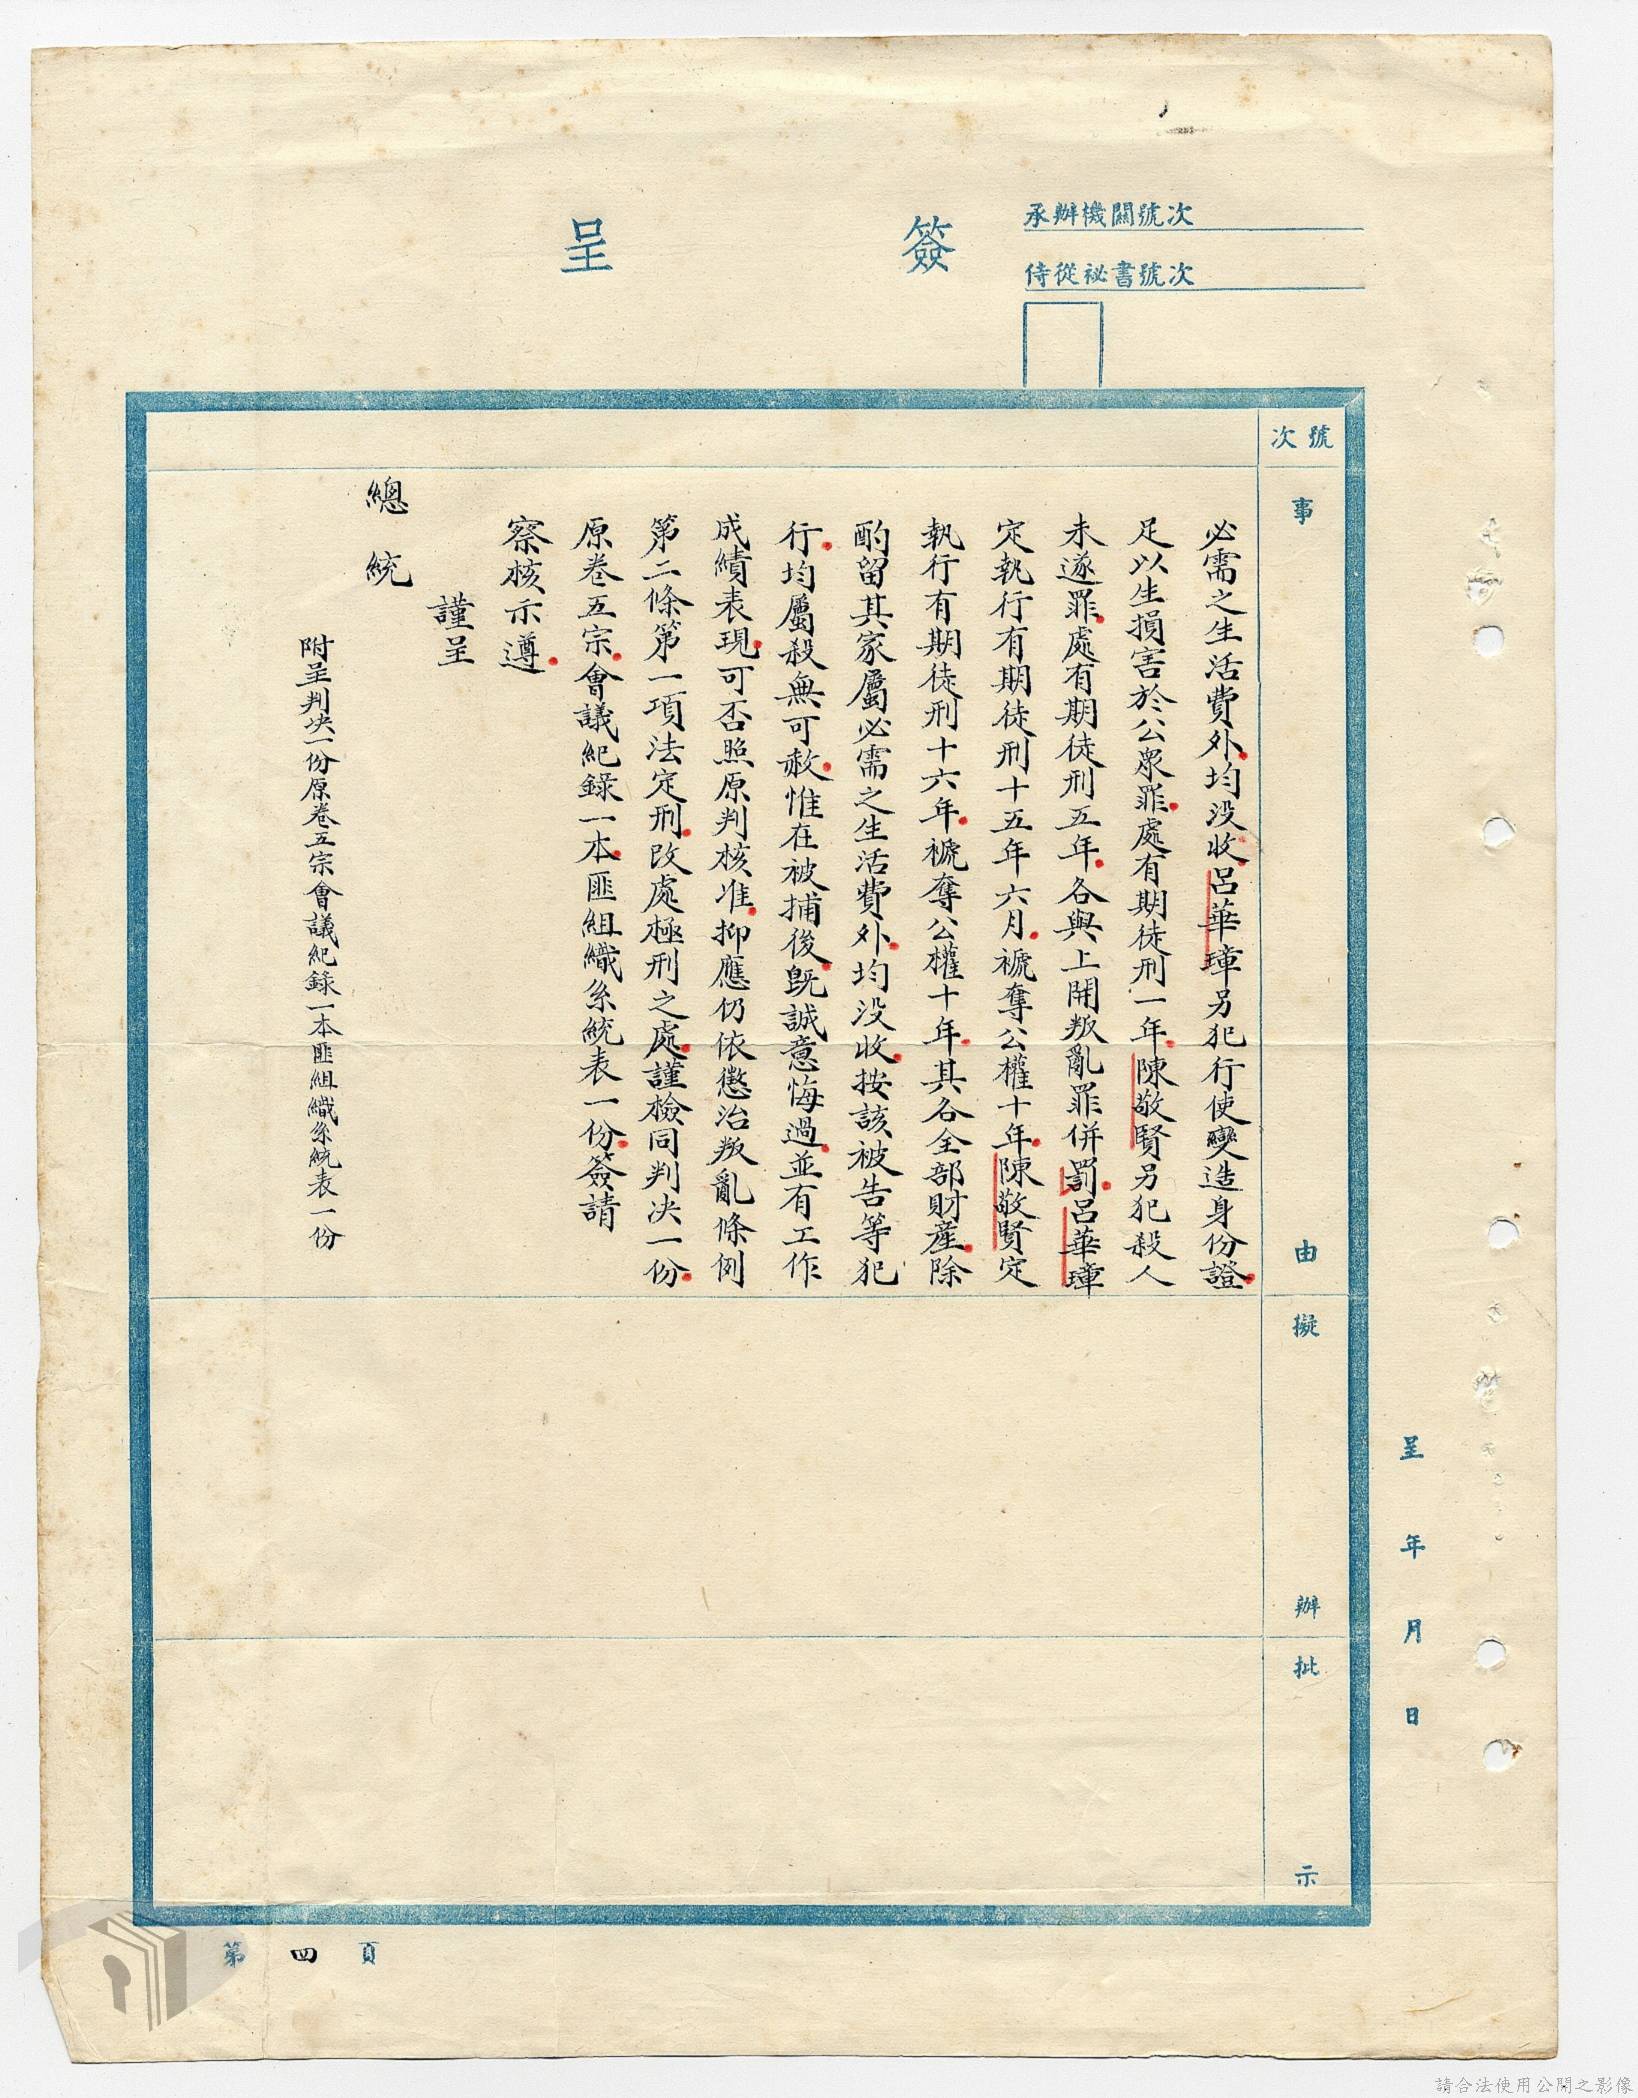 簽呈
承辦機關號次
侍從祕書號次
號次
事由
擬辦
批示
必需之生活費外均没收呂華璋另犯行使變造身份證
足以生損害於公眾罪處有期徒刑一年陳敬賢另犯殺人
未遂罪處有期徒刑五年各與上開叛亂罪併罰呂華璋
定執行有期徒刑十五年六月褫奪公權十年陳敬賢定
執行有期徒刑十六年褫奪公權十年其各全部財產除
酌留其家屬必需之生活費外均没收按該被告等犯
行均屬殺無可赦惟在被捕後既誠意悔過並有工作
成績表現可否照原判核准抑應仍依懲治叛亂條例
第二條第一項法定刑改處極刑之處謹檢同判決一份
原卷五宗會議紀錄一本匪組織系統表一份簽請
察核示遵
謹呈
總統
附呈判决一份原卷五宗會議紀錄一本匪組織系統表一份
呈 年 月 日
第四頁
請合法使用公開之影像